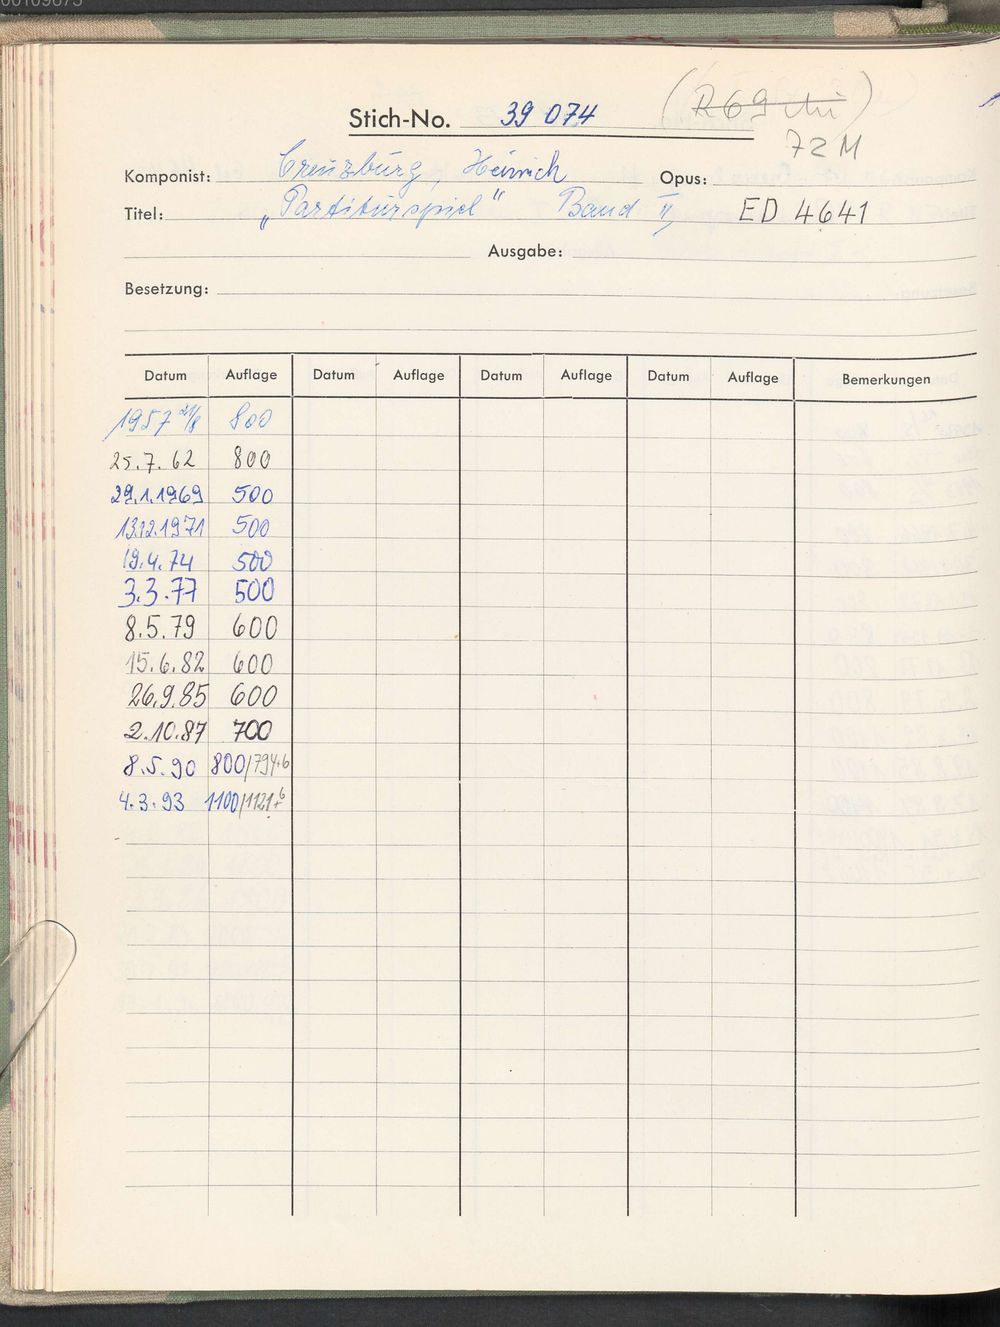 Stich-No. 39 074
72 M
Komponist: Creuzburg, Heinrich Opus:
Titel: „Partiturspiel" Band II, ED 4641
Ausgabe:
Besetzung:
Datum Auflage Datum Auflage Datum Auflage Datum Auflage Bemerkungen
1957 800
25.7.62 800
29.1.1969 500
13.12.1971 500
19.4.74 500
3.3.77 500
8.5.79 600
15.6.82 600
26.9.85 600
2.10.87 700
8.5.90 800/794+6
4.3.93 1100/1121+6